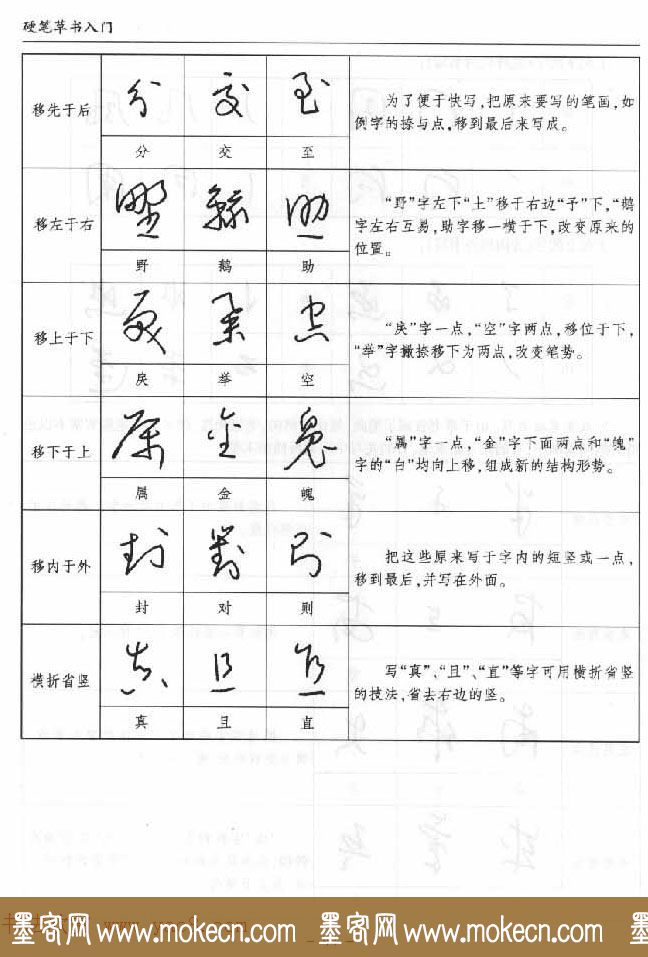 硬笔草书入门
移先于后
分 交 至
为了便于快写,把原来要写的笔画,如
例字的捺与点,移到最后来写成。
移左于右
野 鹅 助
“野”字左下“土”移于右边“予”下,“鹅
字左右互易,助字移一横于下,改变原来的
位置。
移上于下
戾 举 空
“戾”字一点,“空”字两点,移位于下,
“举”字撇捺移下为两点,改变笔势。
移下于上
属 金 魄
“属”字一点,“金”字下面两点和“魄”
字的“白”均向上移,组成新的结构形势。
移内于外
封 对 则
把这些原来写于字内的短竖或一点,
移到最后,并写在外面。
横折省竖
真 且 直
写“真”、“且”、“直”等字可用横折省竖
的技法,省去右边的竖。
墨客网 www.mokecn.com 墨客网 www.mokecn.com